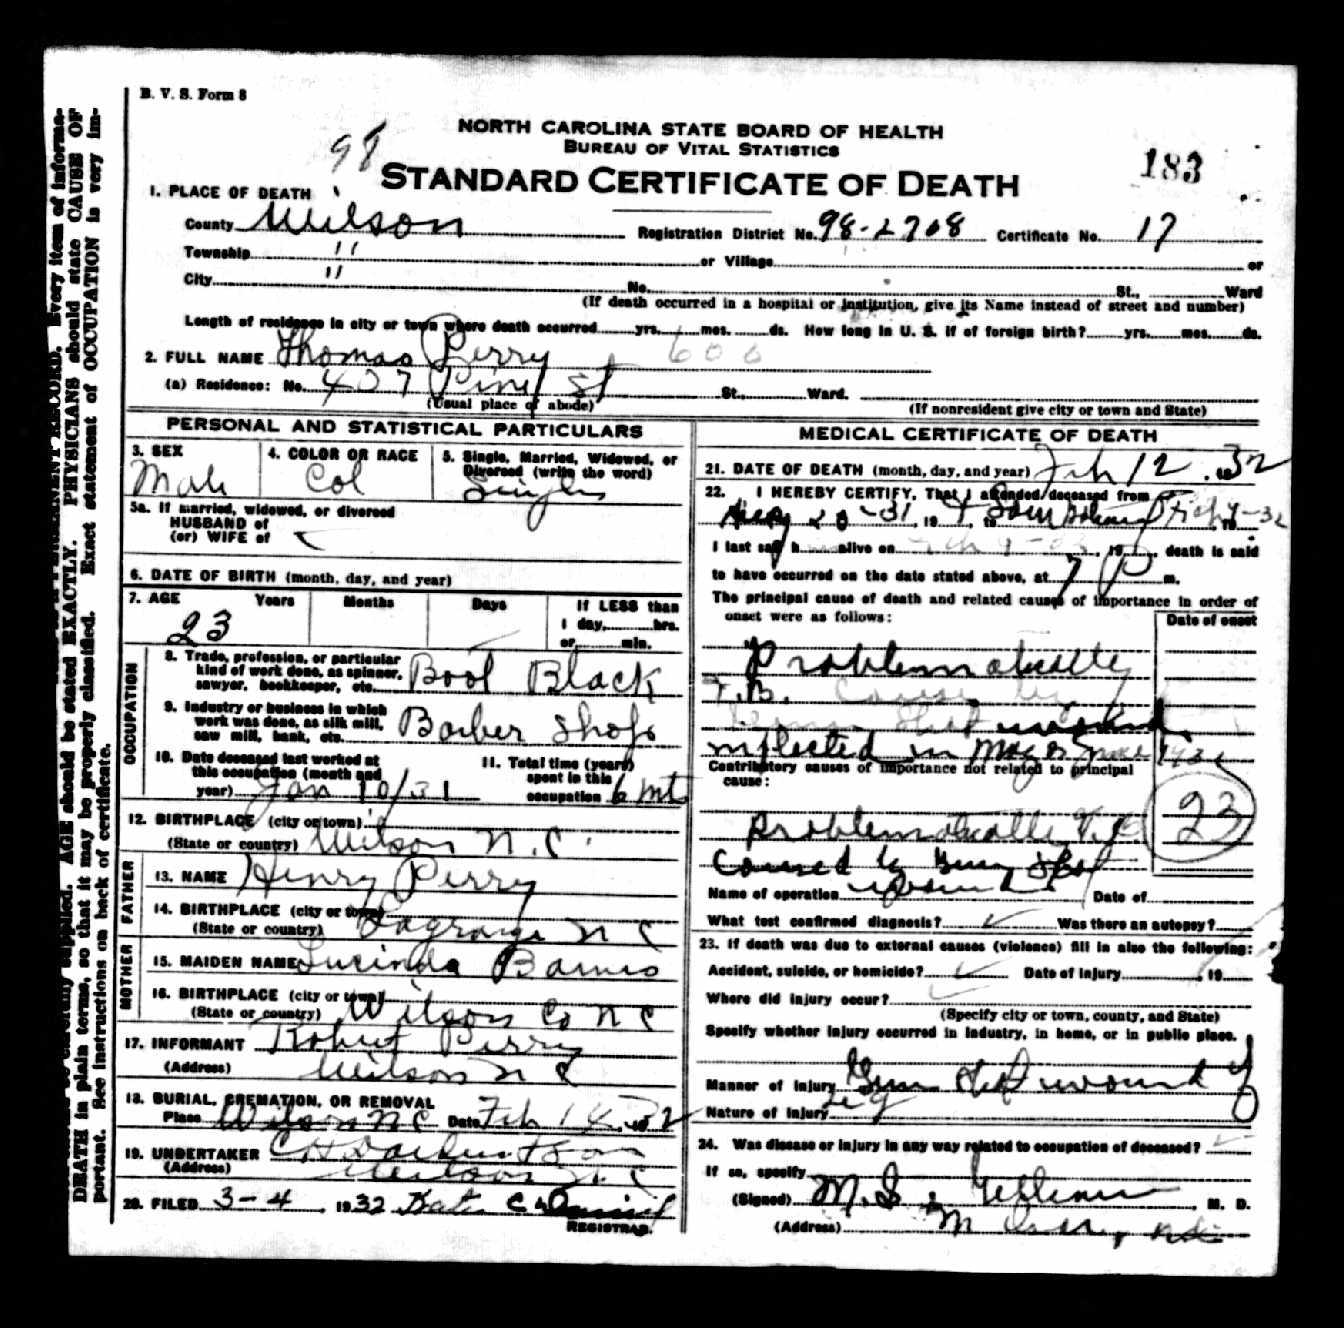 B. V. S. Form 8
NORTH CAROLINA STATE BOARD OF HEALTH
BUREAU OF VITAL STATISTICS
98
STANDARD CERTIFICATE OF DEATH
183
1. PLACE OF DEATH
County Wilson Registration District No. 98-2708 Certificate No. 17
Township " or Village or
City " No. St., Ward
(If death occurred in a hospital or institution, give its Name instead of street and number)
Length of residence in city or town where death occurred yrs. mos. ds. How long in U. S. if of foreign birth? yrs. mos. ds.
2. FULL NAME Thomas Perry 606
(a) Residence: No. 407 Pine St St., Ward.
(Usual place of abode) (If nonresident give city or town and State)
PERSONAL AND STATISTICAL PARTICULARS
3. SEX Male
4. COLOR OR RACE Col
5. Single, Married, Widowed, or Divorced (write the word) Single
5a. If married, widowed, or divorced
HUSBAND of
(or) WIFE of
6. DATE OF BIRTH (month, day, and year)
7. AGE Years Months Days If LESS than
1 day, hrs.
23 or min.
OCCUPATION
8. Trade, profession, or particular
kind of work done, as spinner,
sawyer, bookkeeper, etc. Boot Black
9. Industry or business in which
work was done, as silk mill,
saw mill, bank, etc. Barber Shop
10. Date deceased last worked at
this occupation (month and
year) Jan 10/31
11. Total time (years)
spent in this
occupation 6 mt
12. BIRTHPLACE (city or town)
(State or country) Wilson N. C.
FATHER
13. NAME Henry Perry
14. BIRTHPLACE (city or town)
(State or country) Lagrange N C
MOTHER
15. MAIDEN NAME Lucinda Barnes
16. BIRTHPLACE (city or town)
(State or country) Wilson Co N C
17. INFORMANT Robert Perry
(Address) Wilson N C
18. BURIAL, CREMATION, OR REMOVAL
Place Wilson N C Date Feb 14, 32
19. UNDERTAKER C H Darden & Son
(Address) Wilson N. C
20. FILED 3-4 1932
REGISTRAR.
MEDICAL CERTIFICATE OF DEATH
21. DATE OF DEATH (month, day, and year) Feb 12, 1932
22. I HEREBY CERTIFY, That I attended deceased from
20-31, 19 to 19 -32
I last saw h alive on 19 death is said
to have occurred on the date stated above, at 7 P m.
The principal cause of death and related causes of importance in order of
onset were as follows:
Date of onset
Problematically
T.B.
neglected in
Contributory causes of importance not related to principal
cause:
Problematically
Caused by Gun Shot
23
Name of operation wound Date of
What test confirmed diagnosis? Was there an autopsy?
23. If death was due to external causes (violence) fill in also the following:
Accident, suicide, or homicide? Date of injury 19
Where did injury occur?
(Specify city or town, county, and State)
Specify whether injury occurred in industry, in home, or in public place.
Manner of injury Gun Shot wound of
Nature of injury leg
24. Was disease or injury in any way related to occupation of deceased?
If so, specify
(Signed) M. S. M. D.
(Address)
PHYSICIANS should state CAUSE OF
DEATH in plain terms, so that it may be properly classified. Exact statement of OCCUPATION is very im-
portant. See instructions on back of certificate.